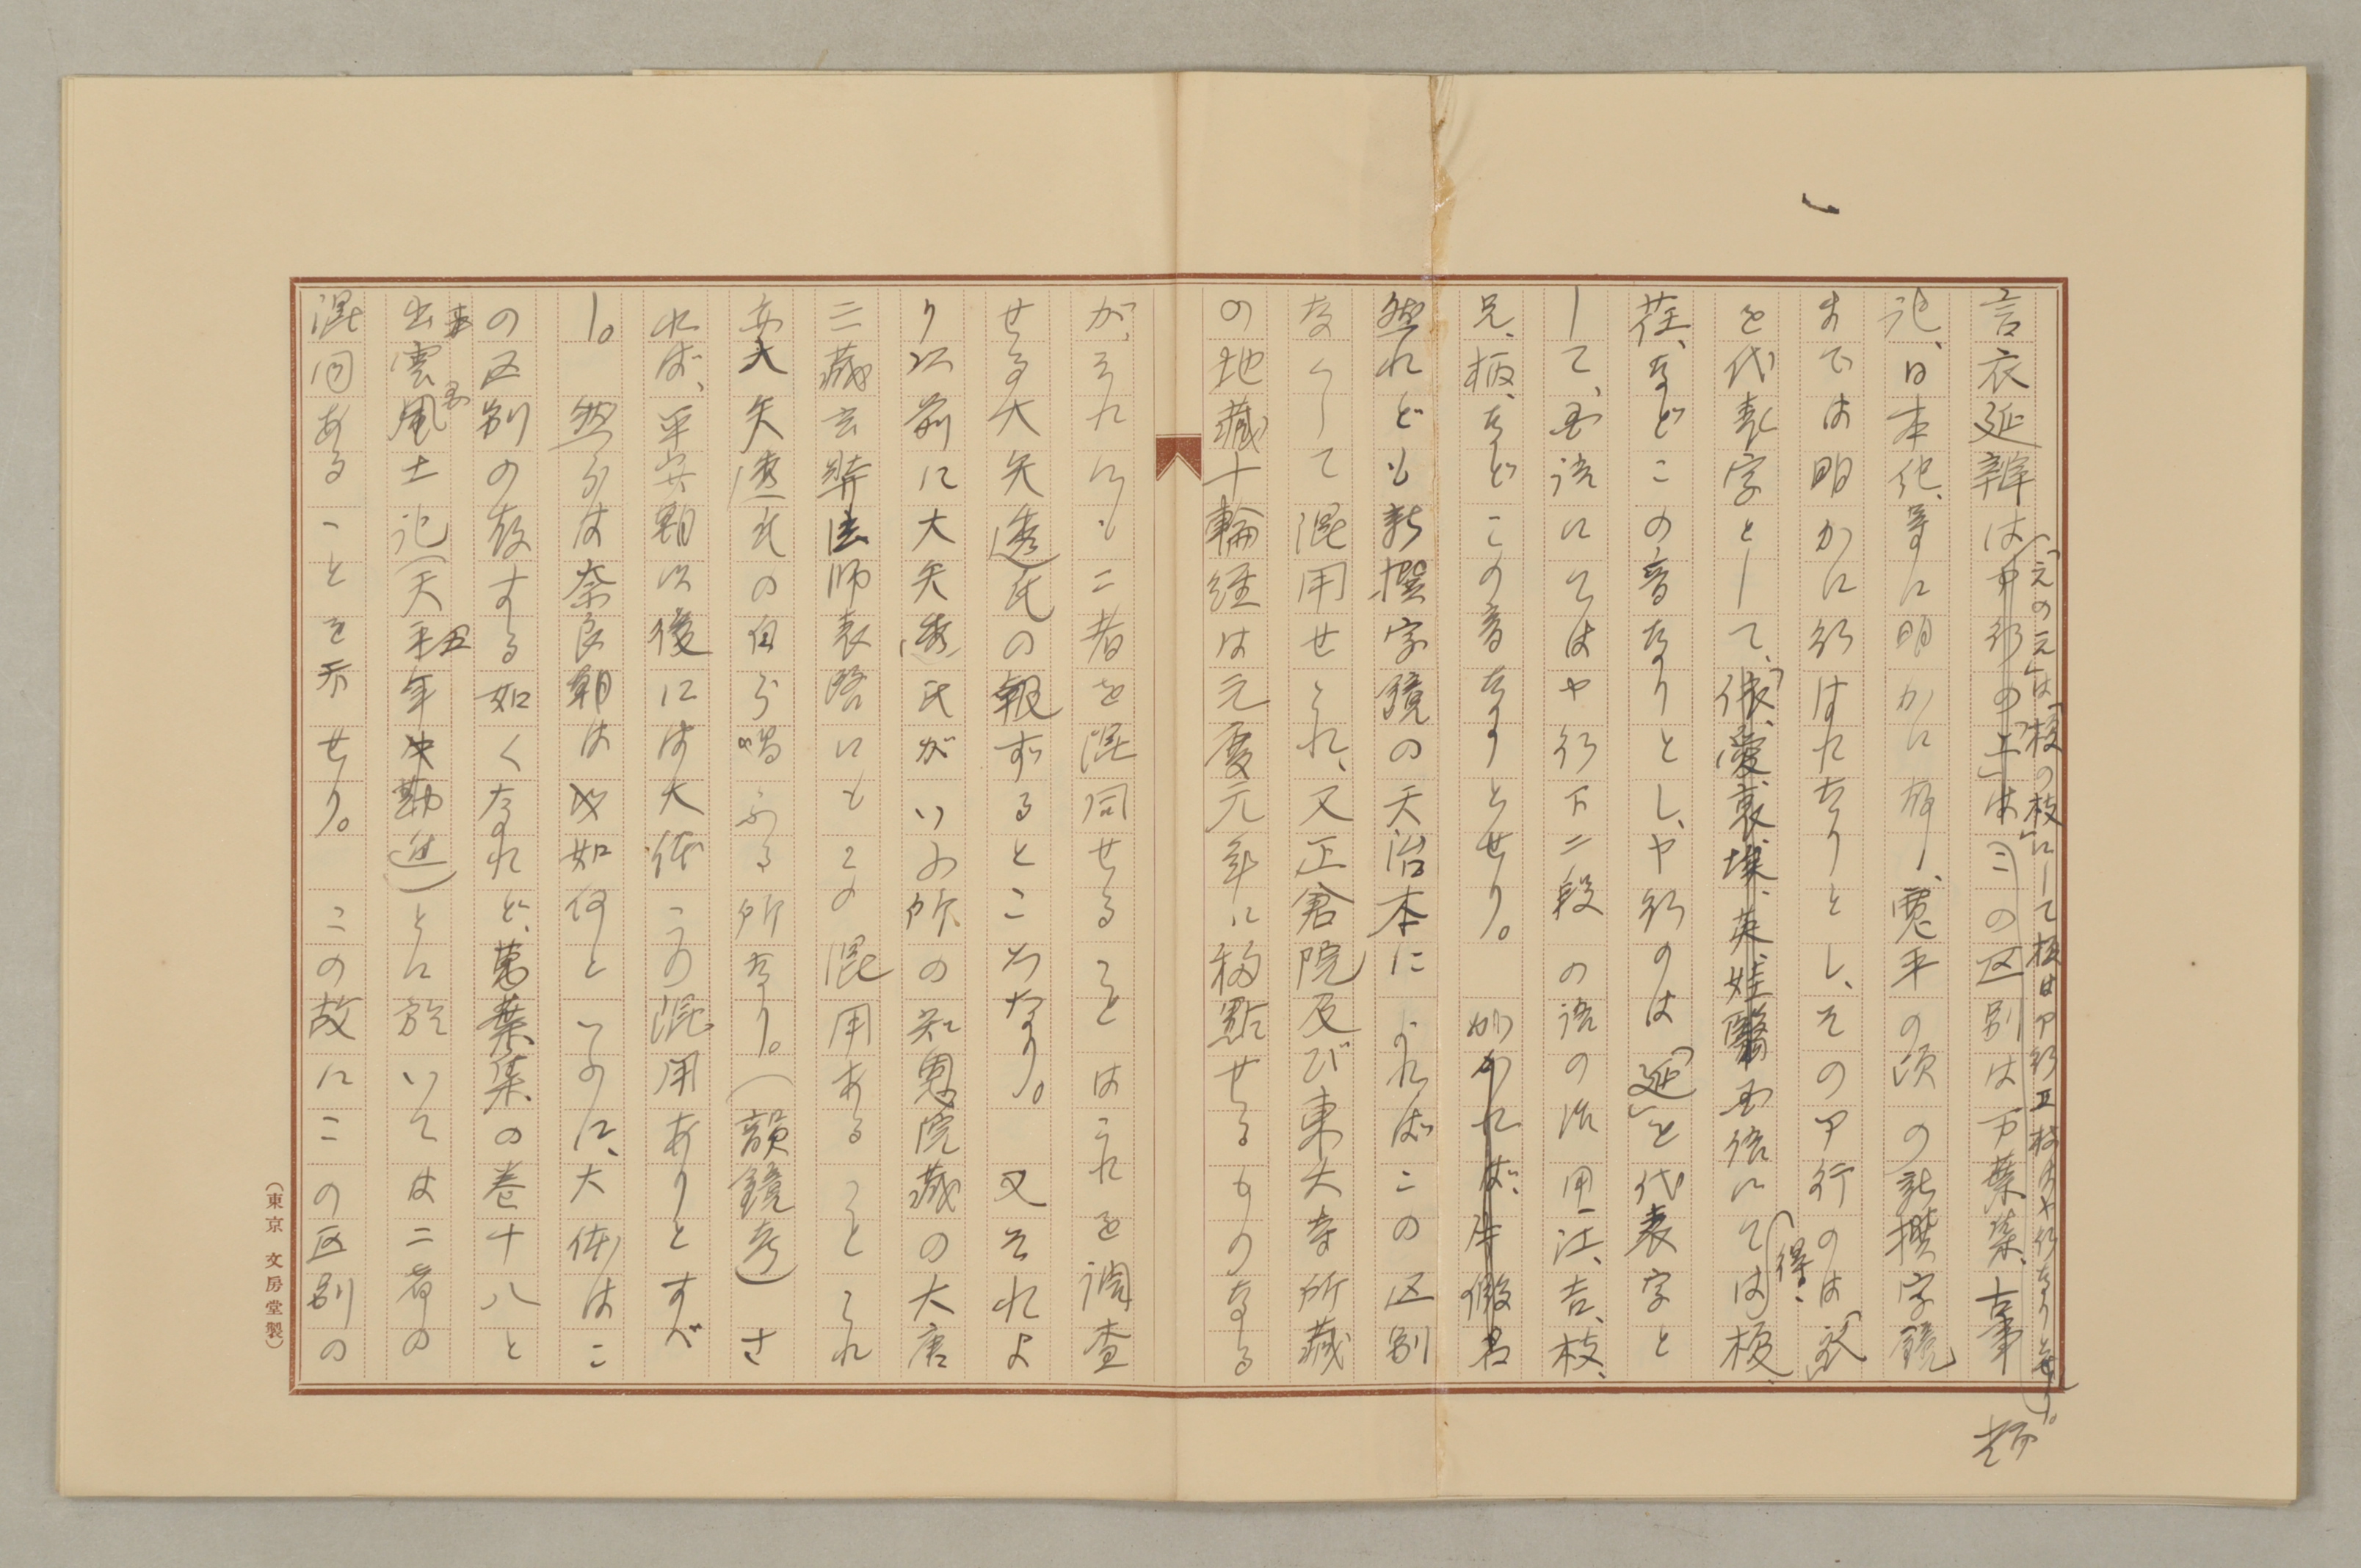 言衣延辯は「え」の区別は万葉集、古事
(「元の元」は「榎の枝」にして榎はア行エ枝はヤ行なりとせり。
記、日本紀、等に明かに存し、寛平の頃の新撰字鏡
までは明かに行はれたりとし、そのア行のは「衣」
を代表字として、国語にては得、榎、
荏、などこの音なりとし、ヤ行のは「延」を代表字と
して、国語にてはヤ行下二段の語の活用江、吉、枝、
兄、柄、などこの音なりとせり。
然れども新撰字鏡の天治本によればこの区別
なくして混用せられ、又正倉院及び東大寺所蔵
の地藏十輪経は元慶元年に移點せるものなる
が、それにも二者を混同せることはこれを調査
せる大矢透氏の報ずるところなり。 又それよ
り以前に大矢透氏がいふ所の知恩院蔵の大唐
三藏玄奘法師表啓にもこの混用あることこれ
亦大矢透氏の自ら唱ふる所なり。(韻鏡考) さ
れば、平安朝以後には大体この混用ありとすべ
し。 然らば奈良朝は如何といふに、大体はこ
の区別の存する如くなれど、萬葉集の巻十八と
出雲国風土記(天平五年勘造)とに於いては二者の
混同あることを示せり。 この故にこの区別の
(東京 文房堂製)